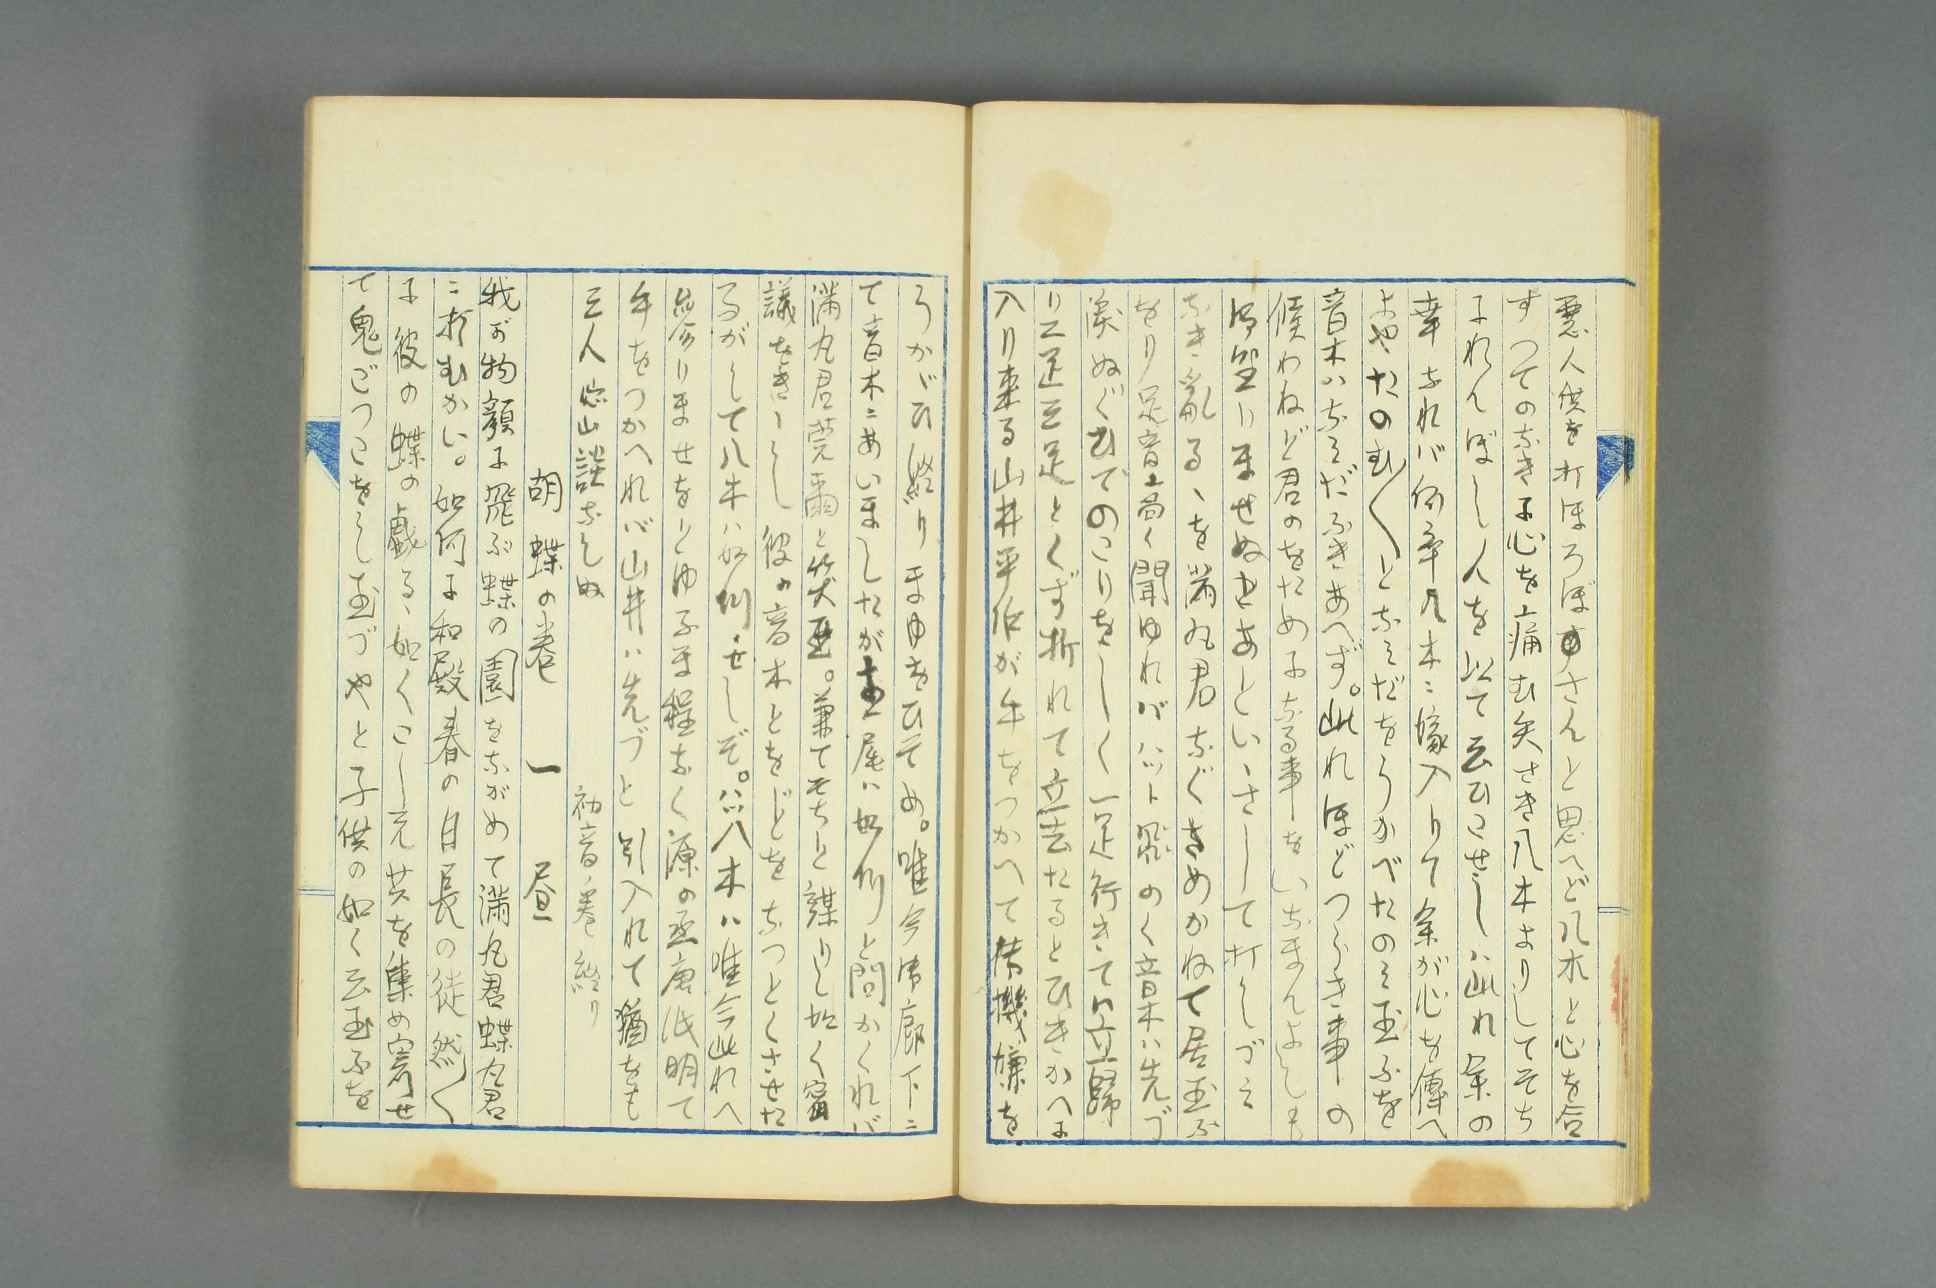 悪人供を打ほろぼさんと思へど八木と心を合
すつてのなき子心を痛む矢さき八木よりしてそち
にれんぼし人を以て云ひこせしハ此れ余の
幸なれバ何卒八木ニ嫁入りて余が心を傳へ
よやたのむ〱となみだをうかべたのみ玉ふを
音木ハなみだふきあへず。此れほどつらき事の
候わねど君のをため子なる事をいなまんよしも
御坐いませぬとあといゝさして打しづみ
なき乱るゝを満丸君なぐさめかねて居玉ふ
をり足音高く聞ゆれバハット飛のく音木ハ先づ
涙ぬぐひてのこりをしく一足行きてハ立歸
り二足三足とくず折れて立去たるとひきかへに
入り来る山井平作が手をつかへて御機嫌を
うかがひ終りまゆをひそめ。唯今御廊下ニ
て音木ニあいましたが首尾ハ如何と問かくれバ
満丸君莞爾と笑玉。兼てそちと謀りし如く密
議をきゝし彼の音木とをどをなつとくさせた
るがして八木ハ如何ゝせしぞ。ハッ八木ハ唯今此れへ
参りませをとゆふま程なく源の丞唐氏明て
手をつかへれバ山井ハ先づと引入れて猶をも
三人密談なしぬ
初音ノ巻終り
胡蝶の巻 一 昼
我が物顔に飛ぶ蝶の園をながめて満丸君蝶丸君
ニ打むかい。如何に和殿春の日長の徒然〱
に彼の蝶の戯るゝ如くこし元共を集め窓せ
て鬼ごつこをし玉づやと子供の如く云玉ふを